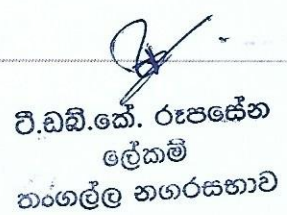 ටී.ඩබ්.කේ. රූපසේන
ලේකම්
තංගල්ල නගරසභාව